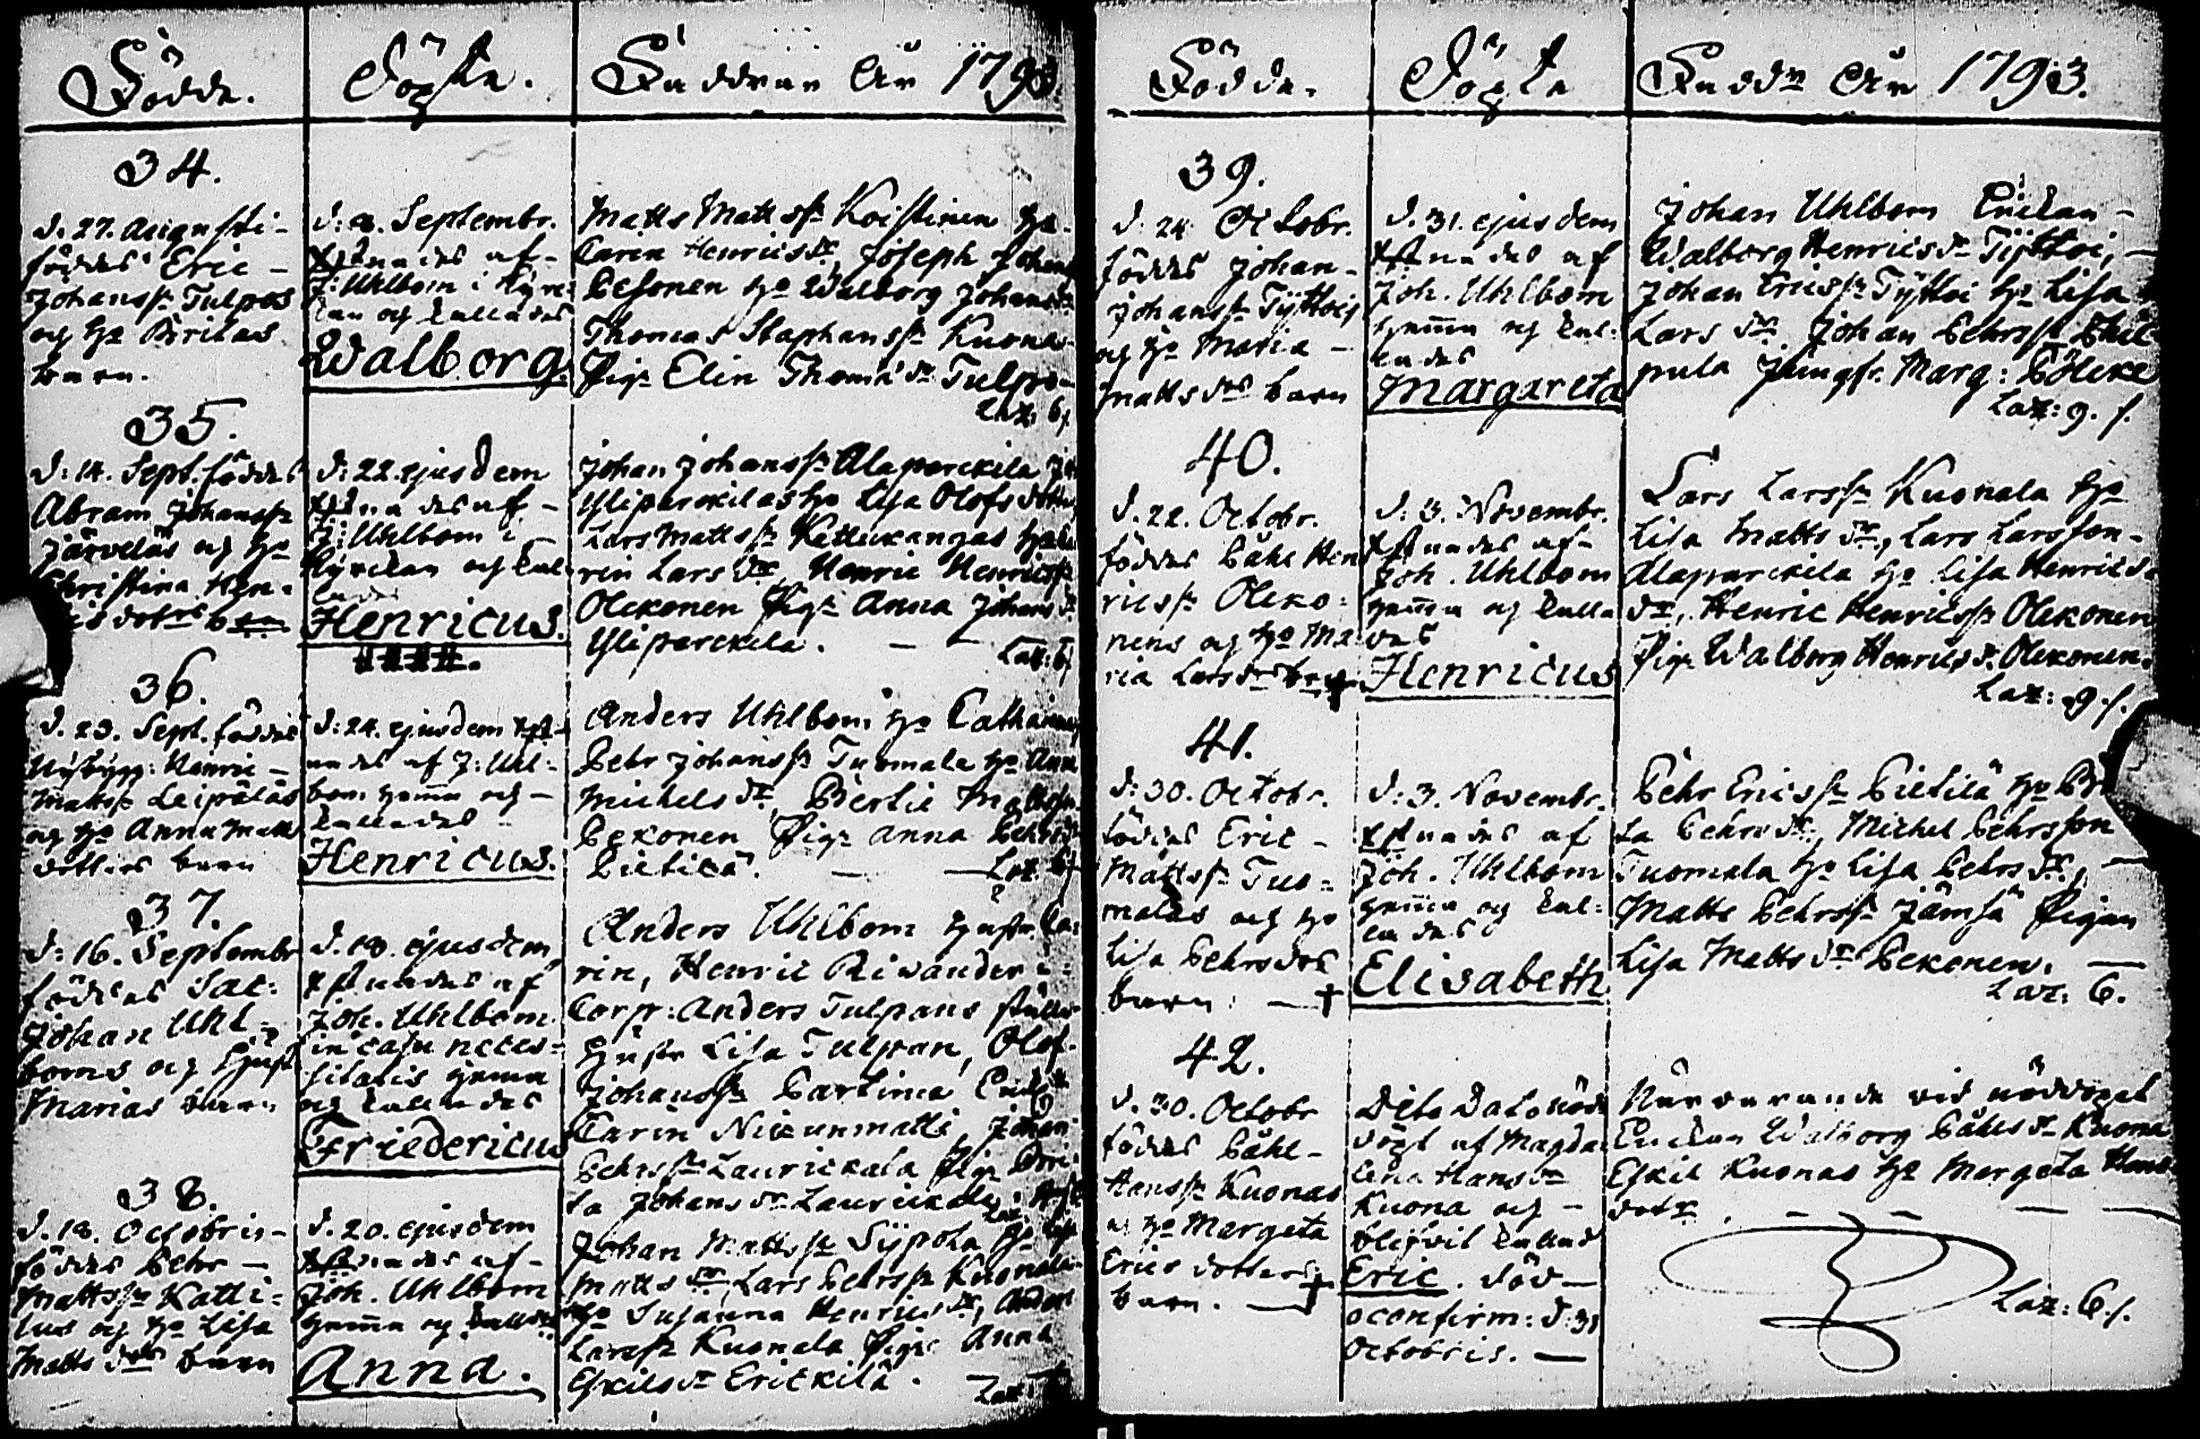 Födde.
Döpte.
Faddrar År 1793
34.
d. 27. Augusti-
föddes Eric -
Johanss. Tulpos
og ho Britas
barn.
d: 8. Septembr.
af-
J: Uhlbom i Kyrc-
kan og kallades
Walborg.
Matts Matts s. Koistinen ho
Carin Henricsdr, Joseph Johans
Pesonen ho Walborg Johansdr
Thomas Staphanss. Kuona-
Pig. Elin Thomä dr Tulpo-
35.
d: 14. Sept. föddes
Abram Johanss.
Järveläs og ho
Christina Hen-
ricsdotrs barn
d: 22. ejusdem
af -
J: Uhlbom i
Kyrckan og kal-
lades
Henricus.
Johan Johanss. Alaparckila
Yliparckilas ho Lisa Olofs dotter
Lars Matts s. Kettukangas ho Ca
rin Lars dr, Henric Henricss.
Olckonen Pig. Anna Johans dr
Yliparckila. - -
36.
d. 23. Sept. föddes
Nybygg: Henric -
Matts s. Leipäläs
og ho Anna Matts
dotters barn
d: 24. ejusdem
af J: Uhl-
bom hema og -
kallades
Henricus.
Anders Uhlbom ho Catharina
Pehr Johanss. Tuomala ho Anna
Michelsdr, Bertil Mattss.
Pekonen Pig. Anna Pehrsdr
Pietilä. - -
37.
d: 16. Septembr
föddes Sac:
Johan Uhl-
boms og Hust
Marias barn
d. 18. ejusdem
af
Joh. Uhlbom
in casu neces-
sitatis hema
og kallades
Friedericus
Anders Uhlbom hustr. Ca-
rin, Henric Rivander
Corpr: Anders Tulpans
hustr Lisa Tulpan, Olof
Johanss. Partima Enk
Carin Nicunmatti, Johan
Pehrss. Laurickala Pig. Bri-
ta Johansdr Laurickala
38.
d. 18. Octobris-
föddes Pehr -
Mattss. Katti-
lus og ho Lisa
Matts dotrs barn
d. 20. ejusdem
af -
Joh. Uhlbom
hema og kallades
Anna.
Johan Matts s. Sypola ho Lisa
Matts dr, Lars Pehrss. Kuonala
ho Susanna Henricsdr, Anders
Larss. Kuonala Pig. Anna
Eskilsdr Erickilä.
Födde.
Döpte
Faddr År 1793.
39.
d. 24 Octobr.
föddes Johan-
Johanss. Tyttois
og ho Maria -
Matts drs barn
d. 31. ejusdem
af
Joh. Uhlbom
hema og kal-
lades
Margareta
Johan Uhlbom Enckan -
Walborg Henricsdr Tyttoi, -
Johan Ericss. Tyttoi ho Lisa
Lars dr, Johan Pehrss.
pula Jungfr. Marg: Pölcke
Lat: 9. f.
40.
d. 22. Octobr.
föddes Påhl Hen
ricss. Olcko-
nens og ho Ma-
ria Larsdrs barn
d: 3. Novembr.
af-
Joh. Uhlbom
hema og kalla
des
Henricus
Lars Larss. Kuonala ho
Lisa Matts dr, Lars Larsson-
Alaparckila ho Lisa Henrics
dr, Henric Henricss. Olckonen
Pig. Walborg Henricsdr Olckonen.
Lat: 9. f.
41.
d: 30. Octobr.
föddes Eric -
Mattss. Tuo-
malas og ho
Lisa Pehrsdrs
barn. - †
d: 3. Novembr.
af
Joh. Uhlbom
hema og kal-
lades
Elisabeth
Pehr Ericss. Pietilä ho Bri
ta Pehrsdr, Michel Pehrsson
Tuomala ho Lisa Pehrsdr, -
Matts Pehrss. Jämsä Pigan
Lisa Matts dr Pekonen. -
Lat: 6.
42.
d. 30. Octobr
föddes Påhl-
Hanss. Kuonas
og ho Margeta
Erics dotters
barn. - †
Dito Dato nöd-
döpt af Magda-
lena Hansdr
Kuona og -
blifvit kallad
Eric. död -
oconfirm: d: 31
Octobris. -
Närvarande vid nöddopet
Enckan Walborg Påhlsdr Kuona
Eskil Kuonas ho Margeta Hans
dotr. - - - -
Lat: 6. f.